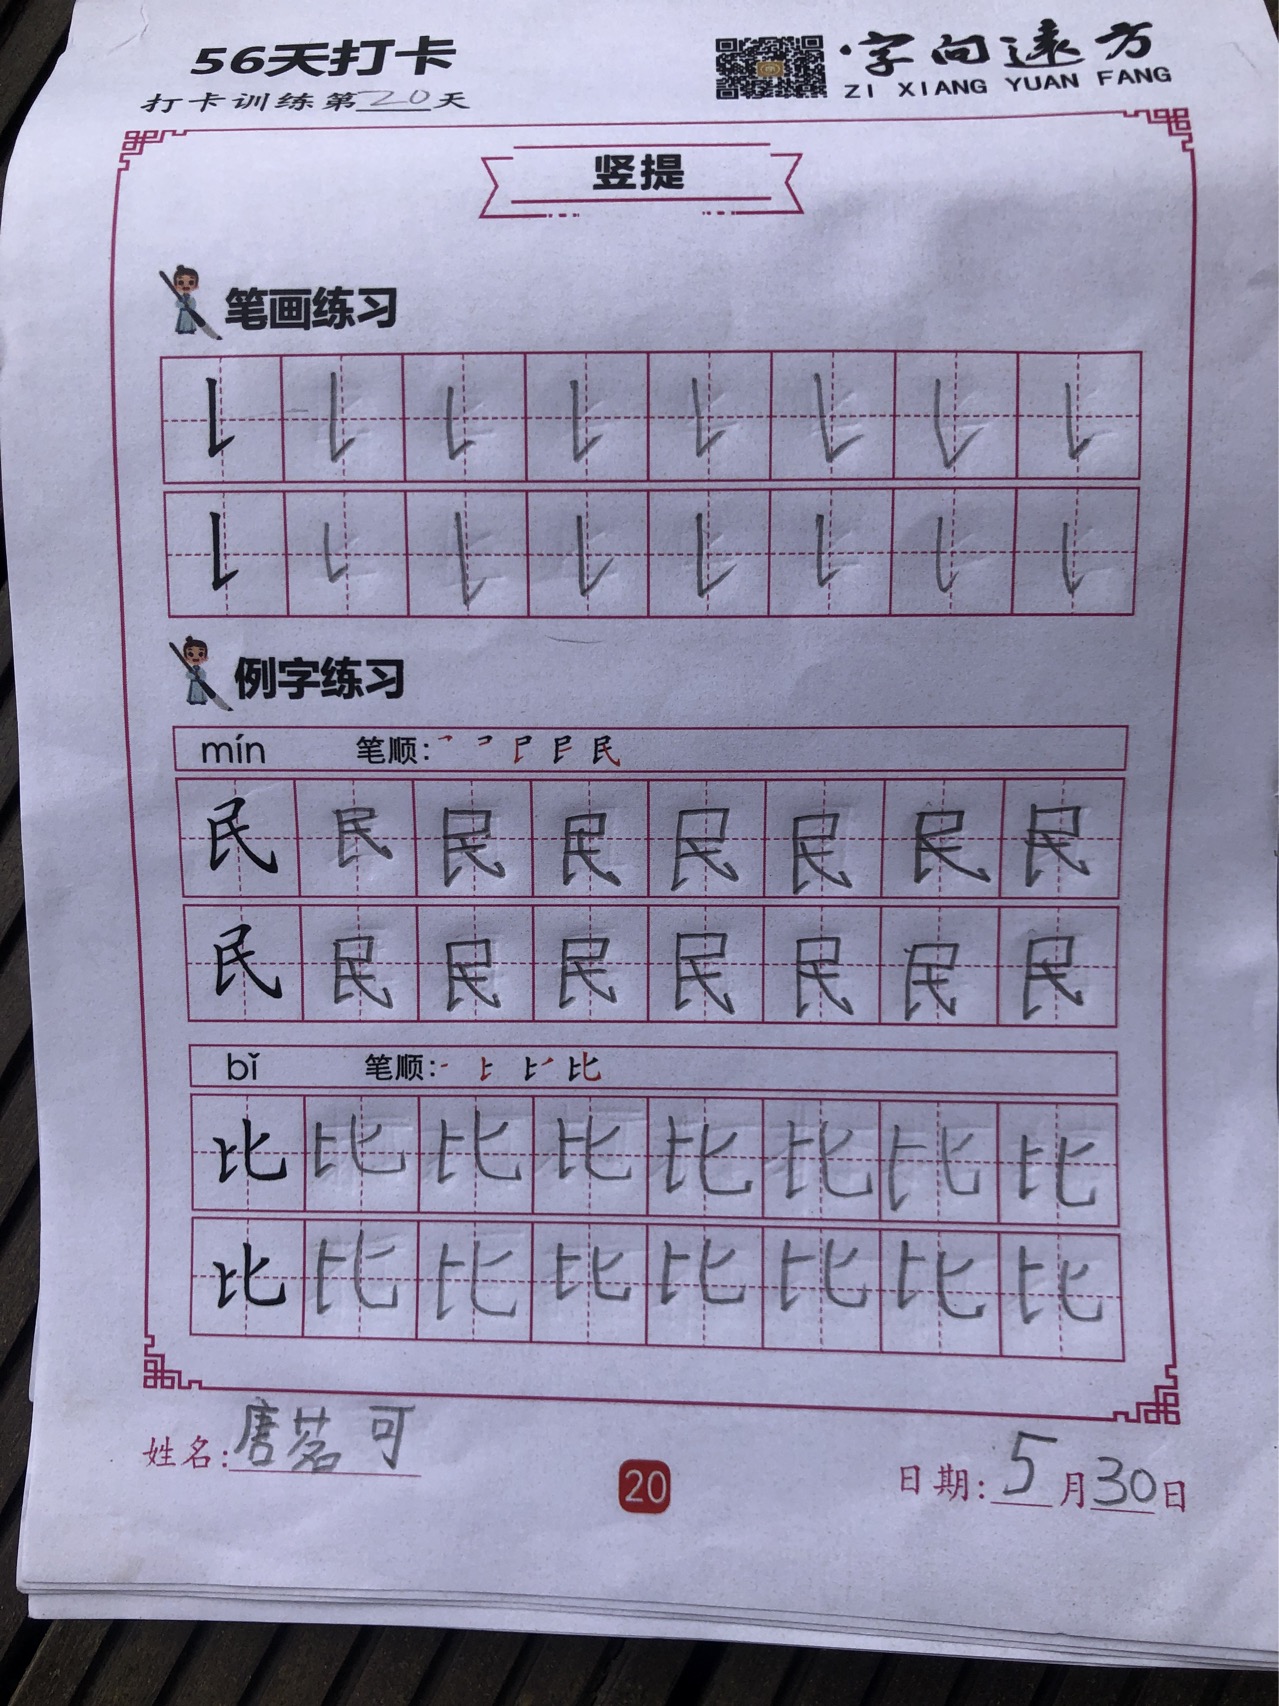 56天打卡
打卡训练第20天
字向远方
ZI XIANG YUAN FANG
竖提
笔画练习
例字练习
mín 笔顺:
民 民 民 民 民 民 民 民
民 民 民 民 民 民 民 民
bǐ 笔顺: 比
比 比 比 比 比 比 比 比
比 比 比 比 比 比 比 比
姓名:唐茗可
20
日期:5月30日